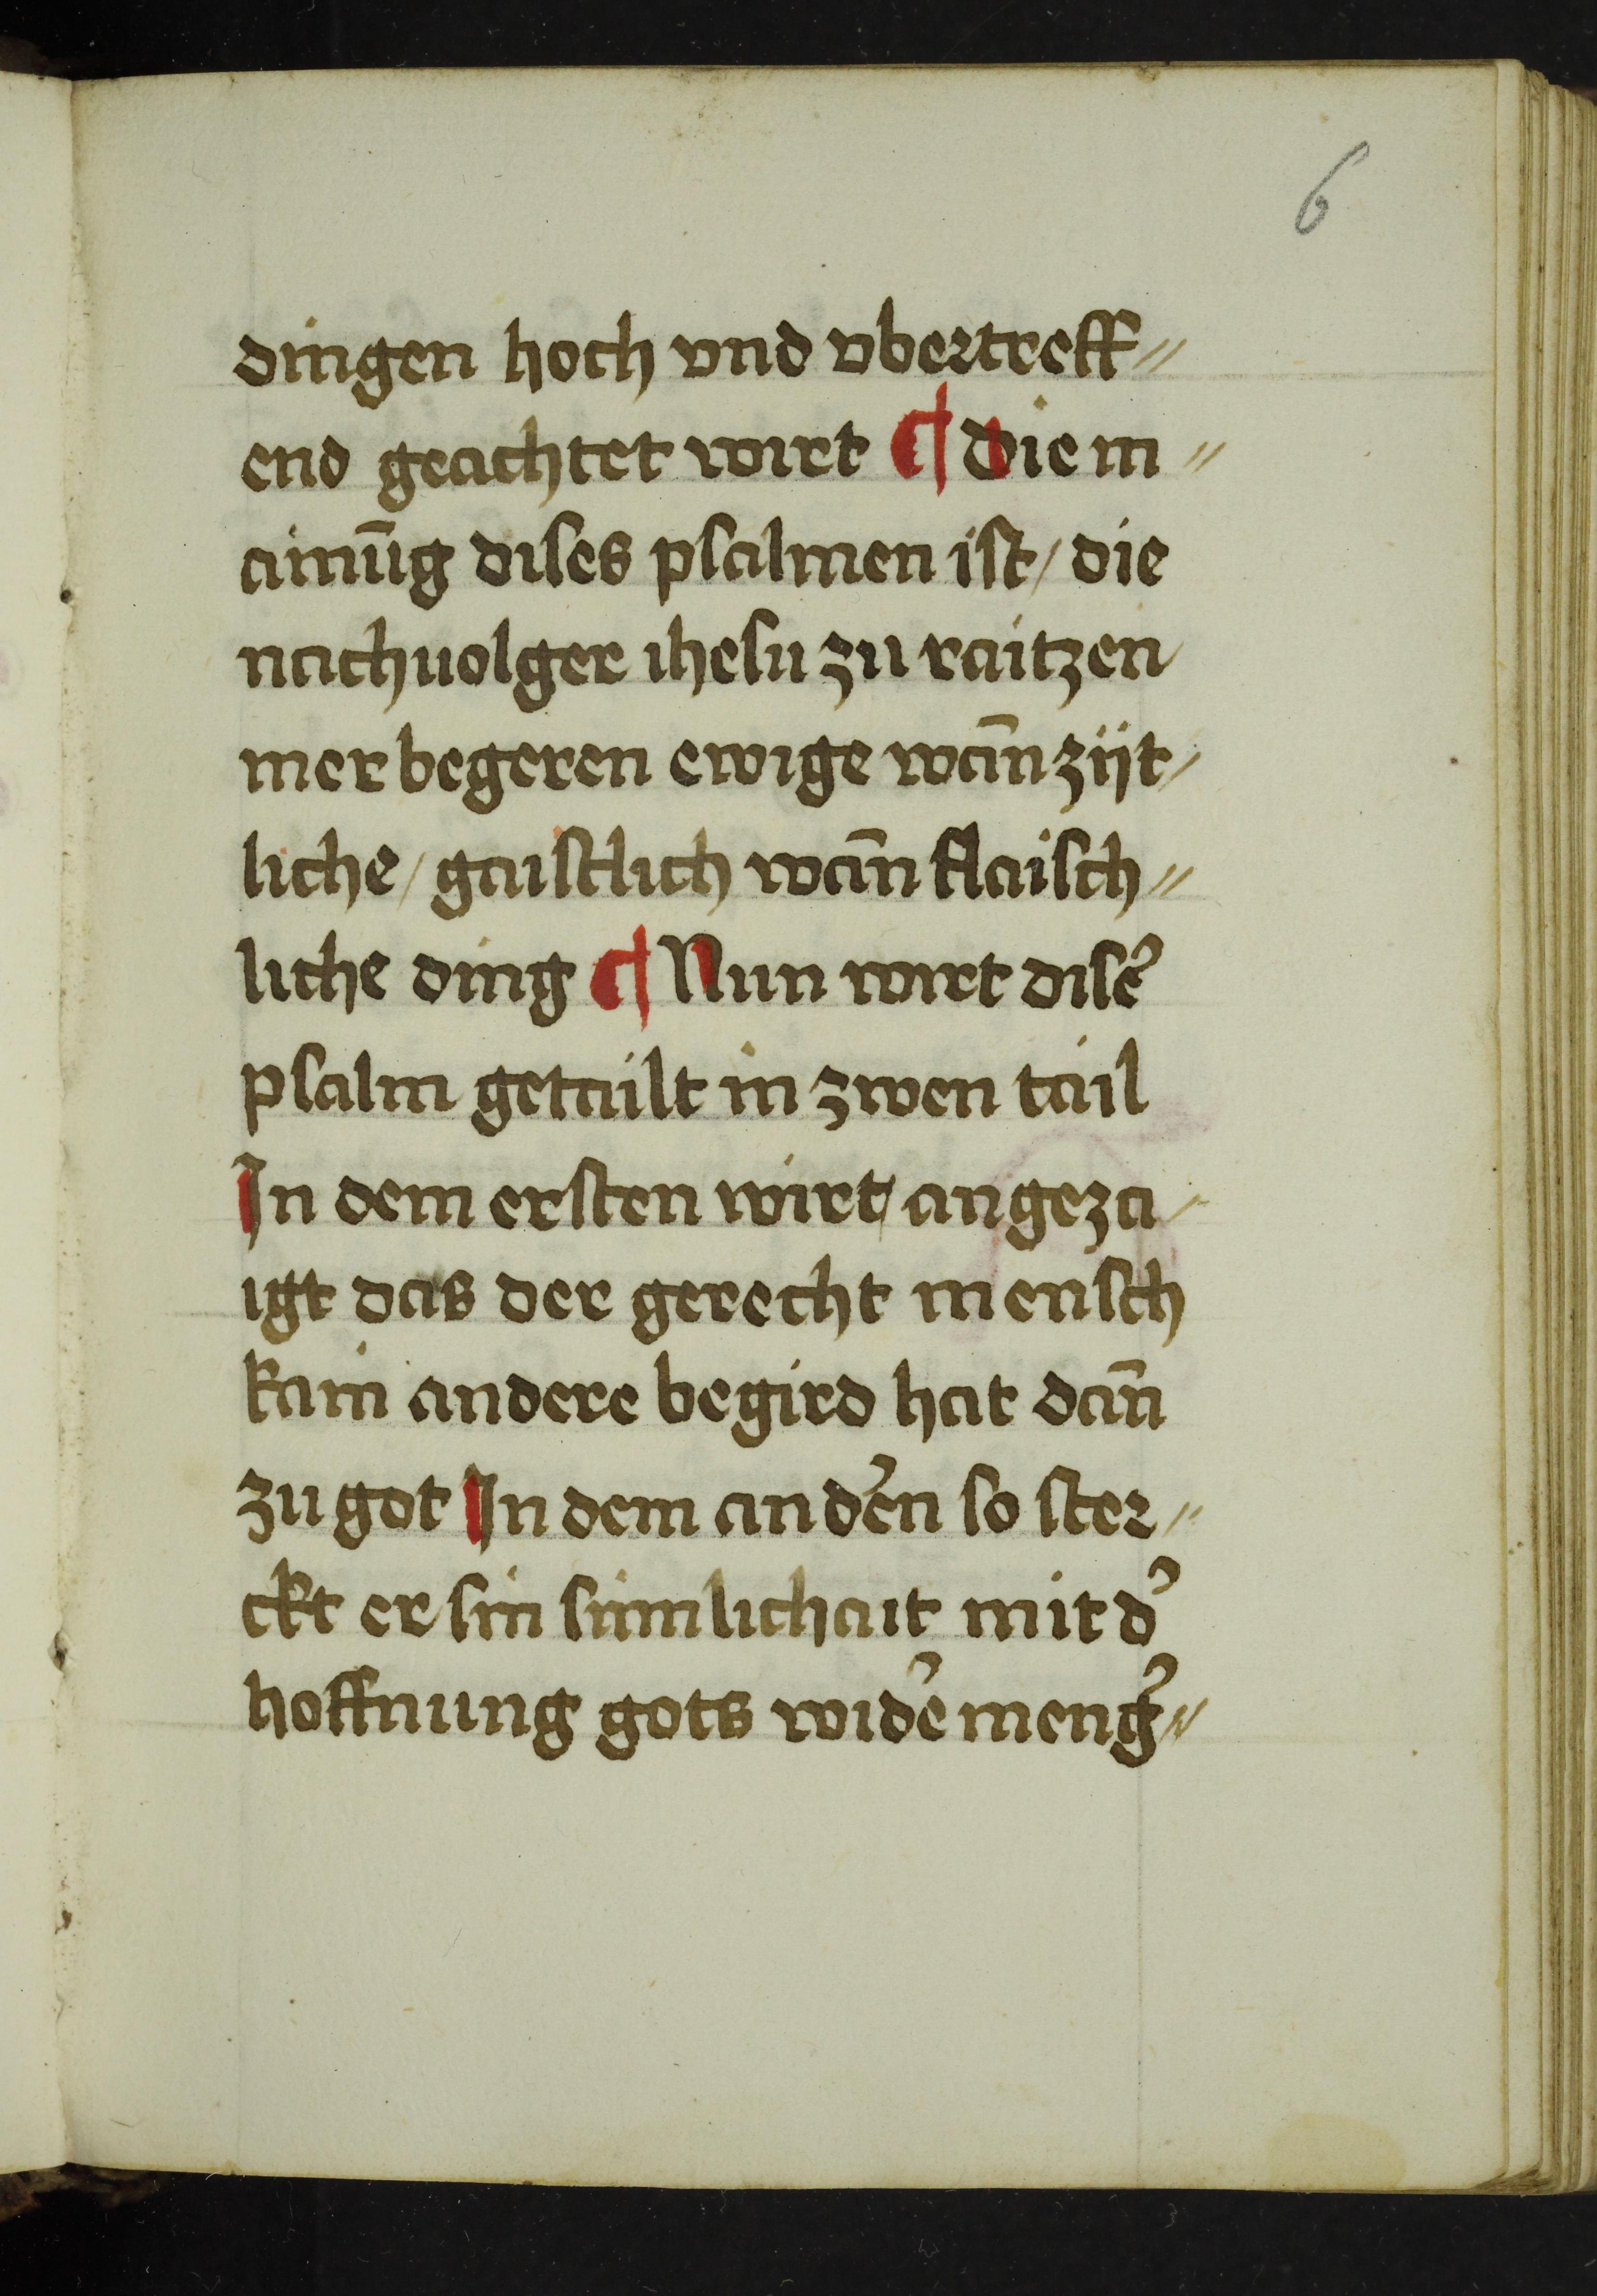 6
dingen hoch vnd vbertreff//
end geachtet wirt ¶ Die m//
ainūg diſes pſalmen iſt/ die
nachuolger iheſu zu raitzen
mer begeren ewige wān zijt/
liche/ gaiſtlich wān flaiſch//
liche ding ¶ Nun wirt diſe᷑
pſalm getailt in zwen tail
In dem erſten wirt angeza/
igt das der gerecht menſch
kain andere begird hat dañ
zu got In dem and᷑en ſo ſter//
ckt er ſin ſinnlichait mit d᷑
hoffnung gots wid᷑e meng᷑//